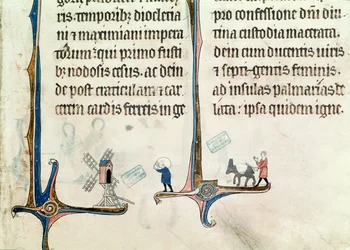 ris temporibꝫ dioclecia
ni & maximiani impera
torum: qui primo fusti
bꝫ nodosis cesus, ac dein
de post craticulam & car
cerem cardis ferreis in ge
pro confessione dñi diu
tina custodia macerata.
dein cum ducentis uiris
& septi-gentis feminis,
ad insulas palmarias de
lata: ipsa quidem igne.